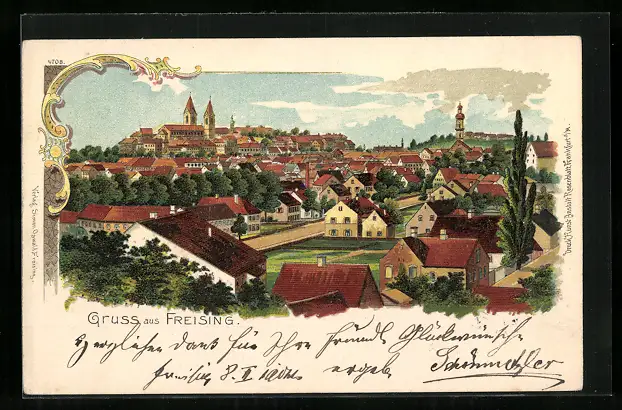 4708.
Verlag Simon Obgesell Freising.
Druck Kunst-Anstalt Rosenblatt, Frankfurt a/M.
GRUSS AUS FREISING.
Herzlichen Dank für Ihre freundl Glückwünsche
Freising 8. II ergeb.